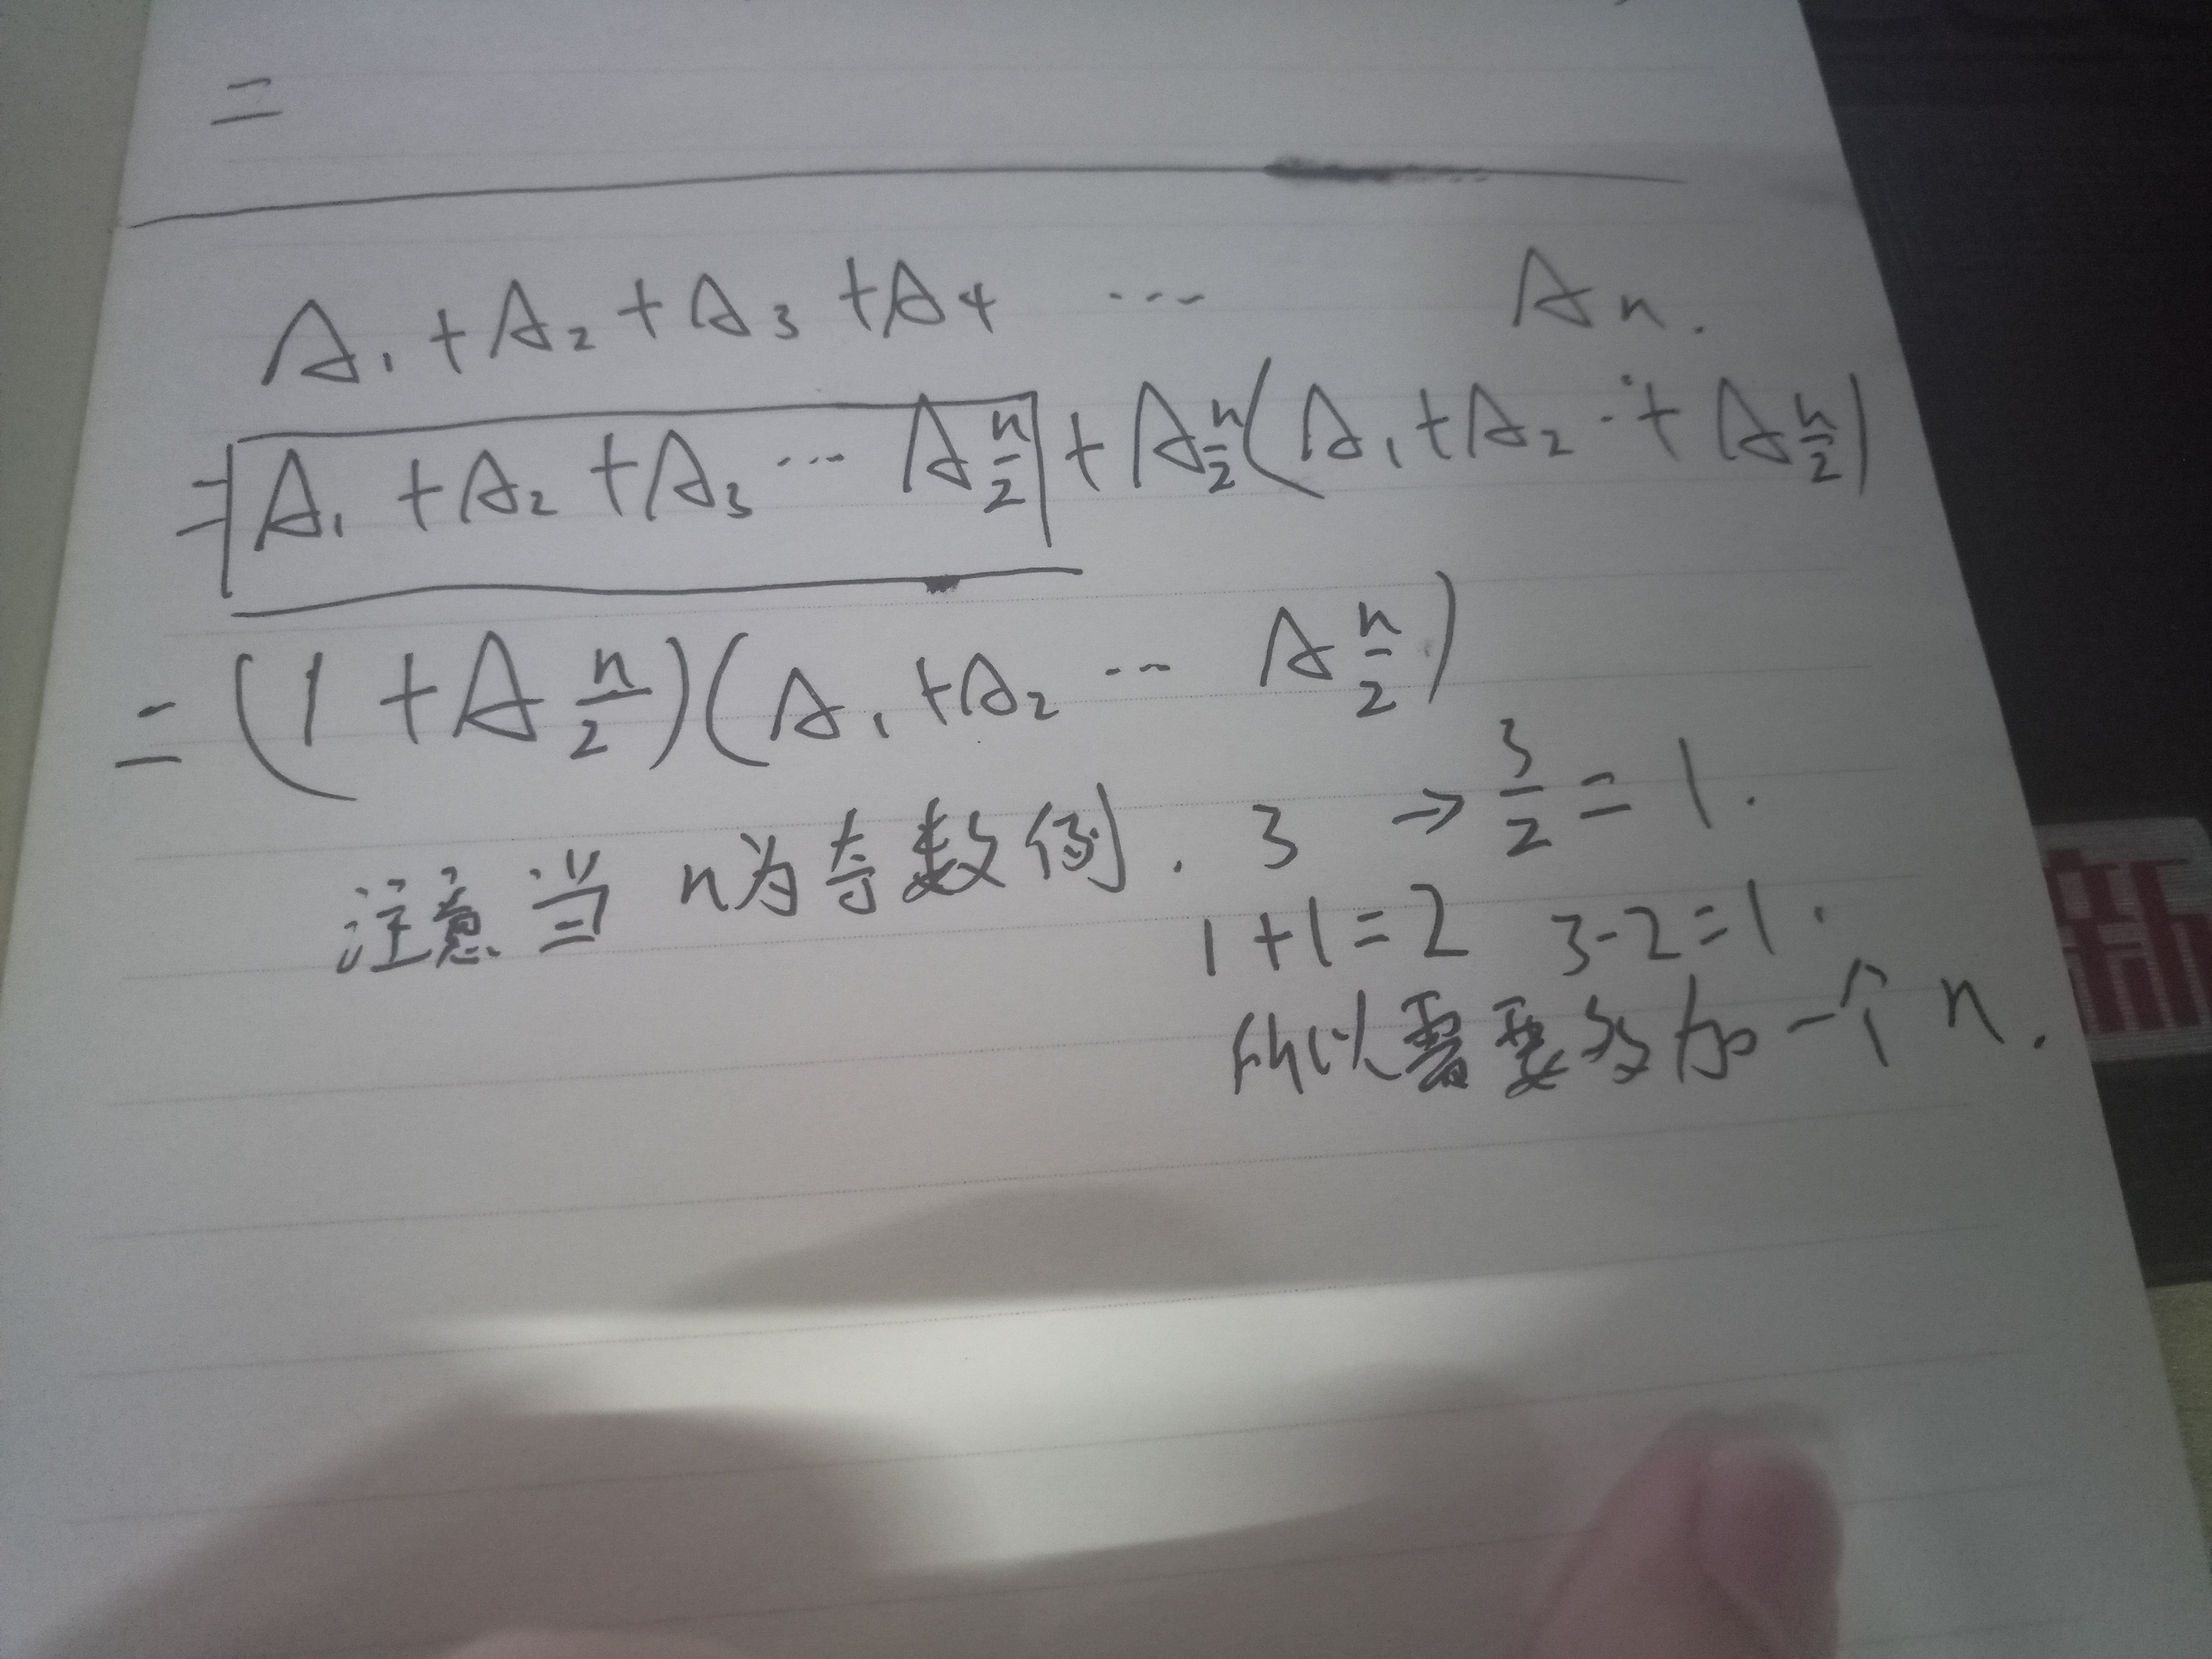 二
A₁ + A₂ + A₃ + A₄ ... Aₙ.
= A₁ + A₂ + A₃ ... A n/2 + A n/2 (A₁ + A₂ ·· + A n/2)
= (1 + A n/2)(A₁ + A₂ ... A n/2)
注意当 n为奇数例. 3 → 3/2 = 1.
1+1=2 3-2=1.
所以需要多加一个 n.